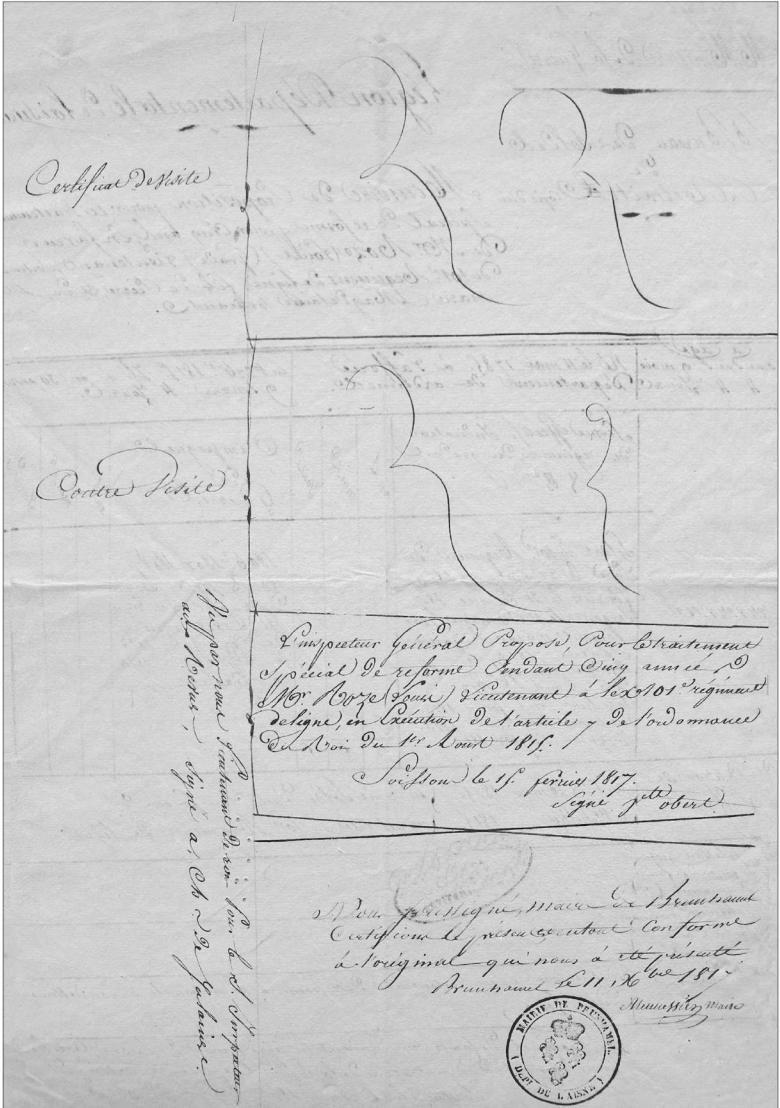 Certificat de Visite
Contre Visite
L'inspecteur Général Propose, Pour le traitement
Spécial de réforme Pendant Cinq année
Mr. Roze (Louis) Lieutenant à l'ex 101e régiment
de ligne, en Exécution de l'article 7 de l'ordonnance
du Roi du 1er Aout 1815.
Soissons le 15 février 1817.
Signé obert
Vu par nous Lieutenant de roi Pour le S. Inspecteur
aux Revues, Signé a. Ch. de
Nous soussigné, maire de Brunhamel
Certifions le présent Conforme
à l'original qui nous à été présenté
Brunhamel le 11 Xbre 181
maire
MAIRIE DE BRUNHAMEL
( DEPT. DE L'AISNE )